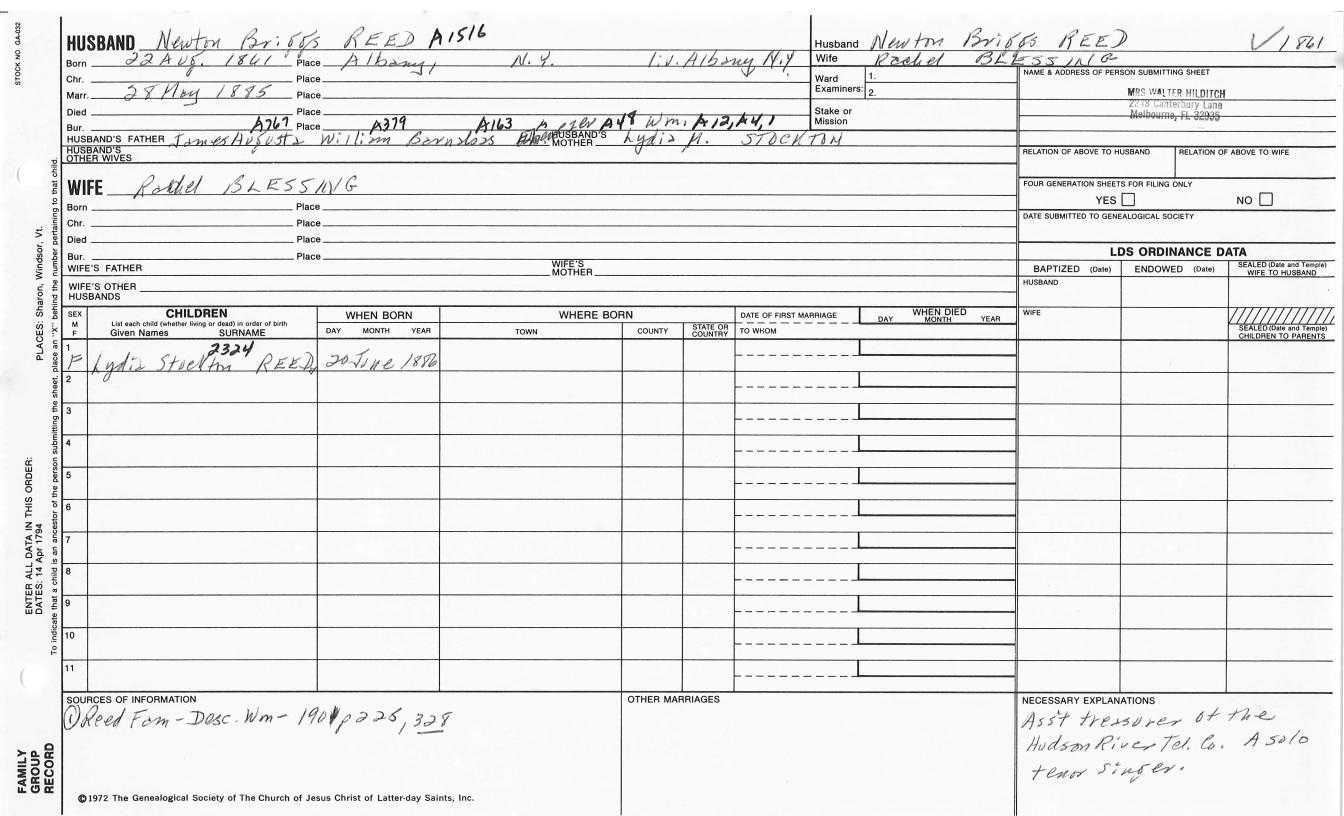 STOCK NO. GA-032
PLACES: Sharon, Windsor, Vt.
ENTER ALL DATA IN THIS ORDER:
DATES: 14 Apr 1794
To indicate that a child is an ancestor of the person submitting the sheet, place an "X" behind the number pertaining to that child.
FAMILY
GROUP
RECORD
HUSBAND Newton Briggs REED A1516
Born 22 Aug. 1861 Place Albany, N.Y. liv. Albany N.Y
Chr. Place
Marr. 28 May 1885 Place
Died Place
Bur. Place
A767 A379 A163 A48 Wm. A12, A4, 1
HUSBAND'S FATHER James Augusta William Barnabas HUSBAND'S MOTHER Lydia M. STOCKTON
HUSBAND'S OTHER WIVES
WIFE Rachel BLESSING
Born Place
Chr. Place
Died Place
Bur. Place
WIFE'S FATHER WIFE'S MOTHER
WIFE'S OTHER HUSBANDS
Husband Newton Briggs REED √ 1861
Wife Rachel BLESSING
Ward Examiners: 1.
2.
Stake or Mission
NAME & ADDRESS OF PERSON SUBMITTING SHEET
MRS WALTER HILDITCH
2278 Canterbury Lane
Melbourne, FL 32935
RELATION OF ABOVE TO HUSBAND RELATION OF ABOVE TO WIFE
FOUR GENERATION SHEETS FOR FILING ONLY
YES NO
DATE SUBMITTED TO GENEALOGICAL SOCIETY
LDS ORDINANCE DATA
BAPTIZED (Date) ENDOWED (Date) SEALED (Date and Temple) WIFE TO HUSBAND
HUSBAND
WIFE
SEALED (Date and Temple) CHILDREN TO PARENTS
SEX M F
CHILDREN
List each child (whether living or dead) in order of birth
Given Names SURNAME
WHEN BORN
DAY MONTH YEAR
WHERE BORN
TOWN COUNTY STATE OR COUNTRY
DATE OF FIRST MARRIAGE
TO WHOM
WHEN DIED
DAY MONTH YEAR
2324
1 F Lydia Stockton REED 20 June 1886
2
3
4
5
6
7
8
9
10
11
SOURCES OF INFORMATION
① Reed Fam - Desc. Wm - 1901 p 226, 328
OTHER MARRIAGES
NECESSARY EXPLANATIONS
Ass't treasurer of the
Hudson River Tel. Co. A solo
tenor singer.
©1972 The Genealogical Society of The Church of Jesus Christ of Latter-day Saints, Inc.